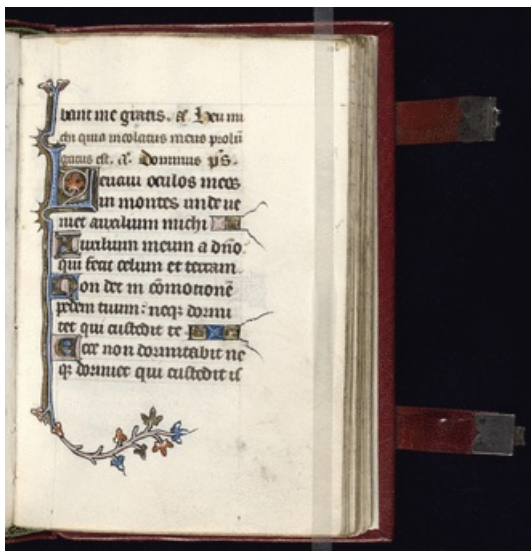 bant me gratis. a. Heu mi
chi quia incolatus meus prolū
gatus est. a. Dominus p̄s.
Leuaui oculos meos
in montes unde ue
niet auxilium michi
Auxilium meum a dn̄o
qui fecit celum et terram
Non det in cōmotionē
pedem tuum: neq; dormi
tet qui custodit te
Ecce non dormitabit ne
q; dormiet qui custodit iſ